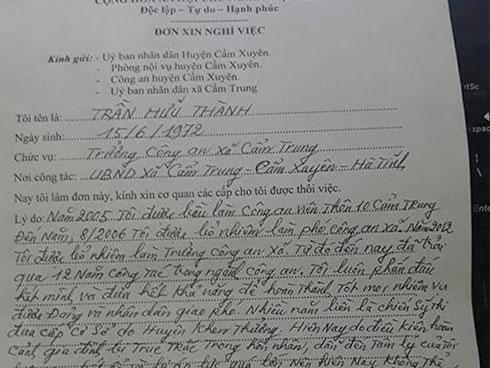 CỘNG HÒA XÃ HỘI CHỦ NGHĨA
Độc lập – Tự do – Hạnh phúc
ĐƠN XIN NGHỈ VIỆC
Kính gửi: - Uỷ ban nhân dân Huyện Cẩm Xuyên.
- Phòng nội vụ huyện Cẩm Xuyên.
- Công an huyện Cẩm Xuyên.
- Uỷ ban nhân dân xã Cẩm Trung
Tôi tên là: TRẦN HỮU THÀNH
Ngày sinh: 15/6/1972
Chức vụ: Trưởng Công an xã Cẩm Trung
Nơi công tác: UBND Xã Cẩm Trung - Cẩm Xuyên - Hà Tĩnh
Nay tôi làm đơn này, kính xin cơ quan các cấp cho tôi được thôi việc.
Lý do: Năm 2005 Tôi được bầu làm công an viên Thôn 10 Cẩm Trung
Đến Năm 8/2006 Tôi được bổ nhiệm làm phó công an xã. Năm 2012
Tôi được bổ nhiệm làm Trưởng công an xã. Từ đó đến nay đã trải
qua 12 Năm công tác trong ngành công an. Tôi luôn phấn đấu
hết mình và đưa hết khả năng để hoàn thành tốt mọi nhiệm vụ
được Đảng và nhân dân giao phó. Nhiều năm liền là chiến sỹ thi
đua cấp cơ sở do Huyện khen Thưởng. Hiện Nay do điều kiện hoàn
cảnh gia đình bị Trục Trặc Trong hôn nhân, dẫn đến tâm lý của tôi
nên hiện Nay không thể